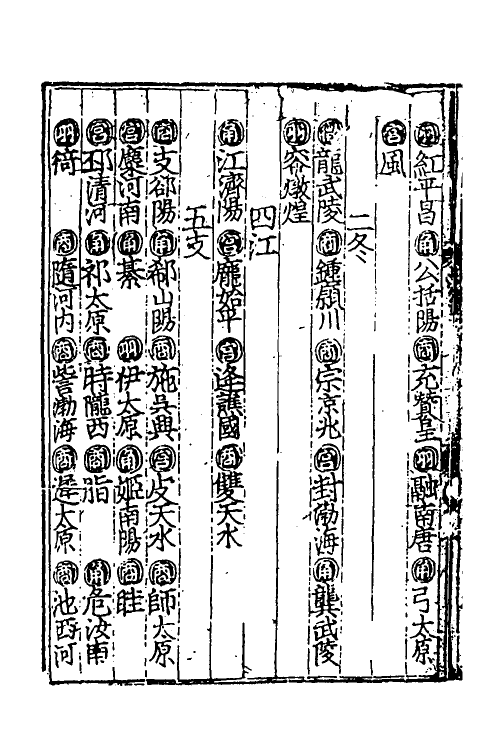 羽紅平昌 角公括陽 商充贊皇 羽融南唐 角弓太原
宮風
二冬
龍武陵 商鍾潁川 商宗京兆 宮封渤海 角龔武陵
羽容燉煌
四江
角江濟陽 宮龐始平 宮逄譙國 商雙天水
五支
商支郃陽 角郗山陽 商施吳興 宮皮天水 商師太原
宮麋河南 角綦 羽伊太原 角姬南陽 商眭
宮邳清河 角祁太原 商時隴西 商脂 角危汝南
羽猗 商隨河内 商訾渤海 商遲太原 商池西河